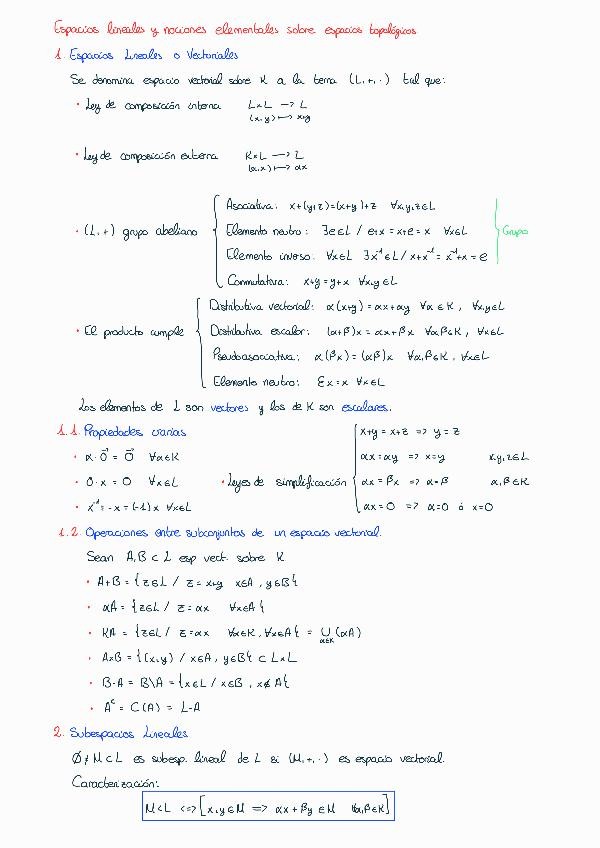 Espacios lineales y nociones elementales sobre espacios topológicos
1. Espacios Lineales o Vectoriales
Se denomina espacio vectorial sobre K a la terna (L,+,·) tal que:
• Ley de composición interna L×L → L
(x,y) ↦ x+y
• Ley de composición externa K×L → L
(α,x) ↦ αx
• (L,+) grupo abeliano
Asociativa: x+(y+z)=(x+y)+z ∀x,y,z∈L
Elemento neutro: ∃e∈L / e+x = x+e = x ∀x∈L
Elemento inverso: ∀x∈L ∃x⁻¹∈L / x+x⁻¹ = x⁻¹+x = e
Conmutativa: x+y = y+x ∀x,y∈L
Grupo
• El producto cumple
Distributiva vectorial: α(x+y) = αx+αy ∀α∈K, ∀x,y∈L
Distributiva escalar: (α+β)x = αx+βx ∀α,β∈K, ∀x∈L
Pseudoasociativa: α(βx) = (αβ)x ∀α,β∈K, ∀x∈L
Elemento neutro: Ɛx = x ∀x∈L
Los elementos de L son vectores y los de K son escalares.
1.1. Propiedades varias
• α·0⃗ = 0⃗ ∀α∈K
• 0·x = 0 ∀x∈L
• x⁻¹ = -x = (-1)x ∀x∈L
• Leyes de simplificación
x+y = x+z => y = z
αx = αy => x=y x,y,z∈L
αx = βx => α=β α,β∈K
αx = 0 => α=0 ó x=0
1.2. Operaciones entre subconjuntos de un espacio vectorial.
Sean A,B ⊂ L esp vect. sobre K
• A+B = {z∈L / z = x+y x∈A, y∈B}
• αA = {z∈L / z = αx ∀x∈A}
• KA = {z∈L / z = αx ∀α∈K, ∀x∈A} = ⋃(αA)
α∈K
• A×B = {(x,y) / x∈A, y∈B} ⊂ L×L
• B-A = B\A = {x∈L / x∈B, x∉A}
• Aᶜ = C(A) = L-A
2. Subespacios Lineales
∅≠M⊂L es subesp. lineal de L si (M,+,·) es espacio vectorial.
Caracterización:
M<L <=> [x,y∈M => αx+βy∈M ∀α,β∈K]